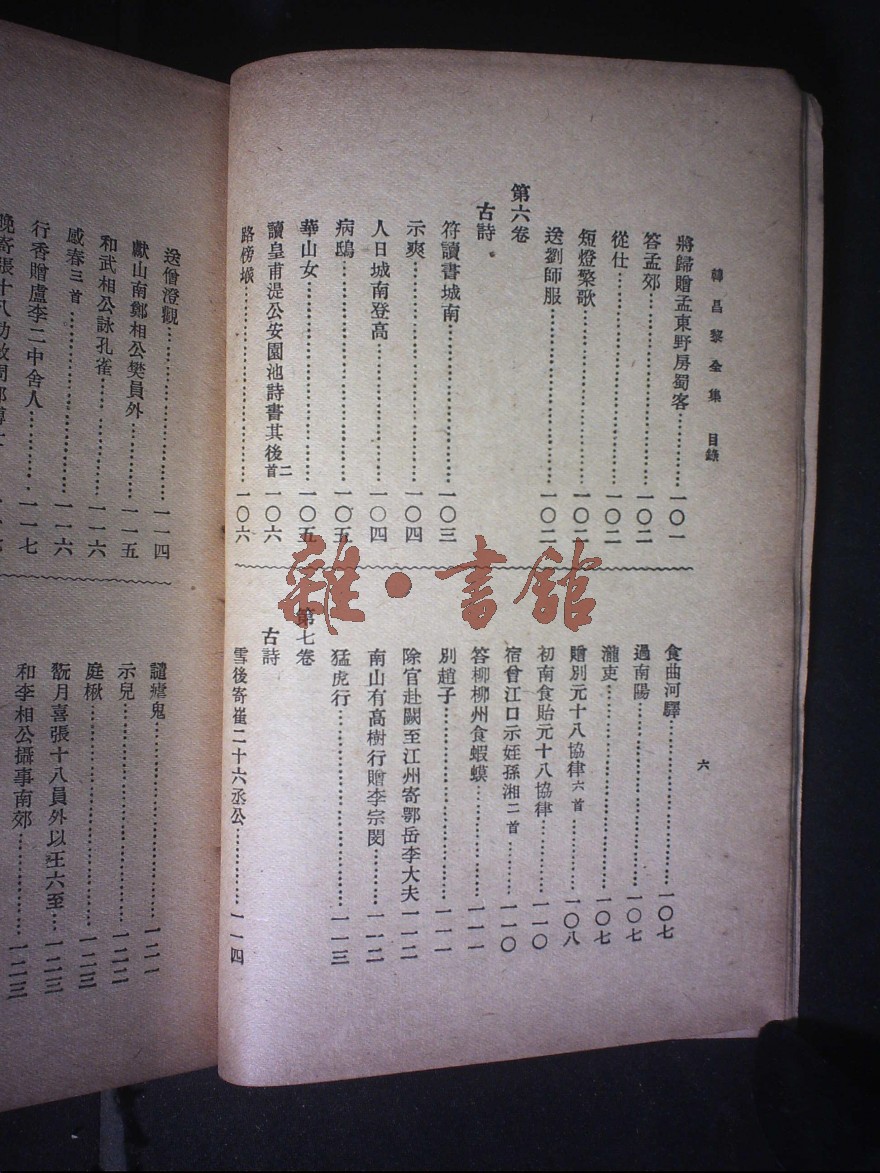 韓昌黎全集 目錄
六
將歸贈孟東野房蜀客……………一〇一
答孟郊……………一〇二
從仕……………一〇二
短燈檠歌……………一〇二
送劉師服……………一〇二
第六卷
古詩
符讀書城南……………一〇三
示爽……………一〇四
人日城南登高……………一〇四
病鴟……………一〇五
華山女……………一〇五
讀皇甫湜公安園池詩書其後二首……………一〇六
路傍堠……………一〇六
食曲河驛……………一〇七
過南陽……………一〇七
瀧吏……………一〇七
贈別元十八協律六首……………一〇八
初南食貽元十八協律……………一一〇
宿曾江口示姪孫湘二首……………一一〇
答柳柳州食蝦蟆……………一一一
別趙子……………一一一
除官赴闕至江州寄鄂岳李大夫……………一一二
南山有高樹行贈李宗閔……………一一二
猛虎行……………一一三
第七卷
古詩
雪後寄崔二十六丞公……………一一四
送僧澄觀……………一一四
獻山南鄭相公樊員外……………一一五
和武相公詠孔雀……………一一六
感春三首……………一一六
行香贈盧李二中舍人……………一一七
晚寄張十八助教周郎博士
譴瘧鬼……………一二一
示兒……………一二二
庭楸……………一二三
翫月喜張十八員外以王六至……………一二三
和李相公攝事南郊……………一二三
雜·書館